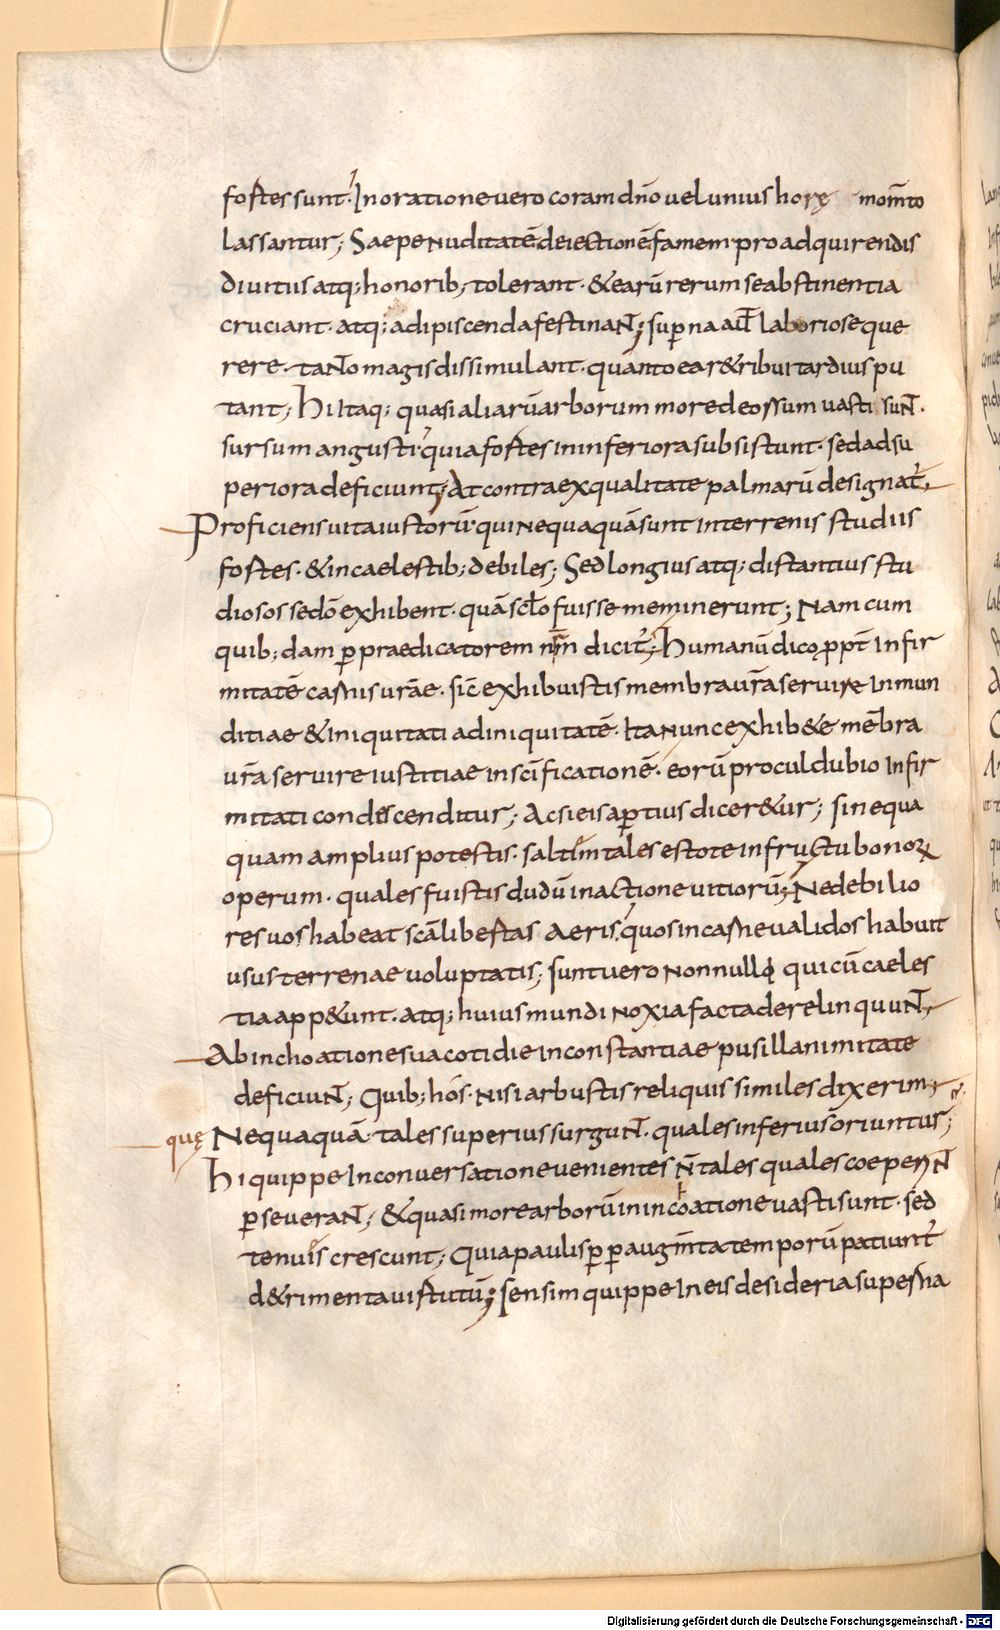 fortes sunt. In oratione vero coram dn̄o vel unius horę mom̄to
lassantur; Saepe nuditatē deiectionē famem pro adquirendis
divitiis atq; honorib; tolerant. & earū rerum se abstinentia
cruciant. atq; adipiscenda festinaNt; sup̄na aut̄ laboriose que
rere. taNto magis dissimulant. quanto ea r&ribui tardius pu
tant; Hi itaq; quasi aliarū arborum more deorsum vasti suNt.
sursum angusti. quia fortes in inferiora subsistunt. sed ad su
periora deficiunt; At contra ex qualitate palmarū designat̃,
Proficiens vita iustorū. qui nequaquā sunt in terrenis studiis
fortes. & in caelestib; debiles; Sed longius atq; distantius stu
diosos se dō exhibent. quā sc̄lo fuisse meminerunt; Nam cum
quib;dam p̱ praedicatorem nr̄m dicit̃; Humanū dico propt̄ infir
mitatē carnis urāe. sic̄ exhibuistis membra urā servire inmun
ditiae & iniquitati ad iniquitatē. Ita nunc exhib&e mēbra
urā servire iustitiae in scīficationē. eorū procul dubio infir
mitati condescenditur; Ac si eis ap̱tius dicer&ur; si nequa
quam amplius potestis. saltim tales estote in fructu bonoꝝ
operum. quales fuistis dudū in actione vitiorū; Ne debilio
res vos habeat scā libertas aeris, quos in carne validos habuit
usus terrenae voluptatis; sunt vero nonnulli qui cū caeles
tia app&unt. atq; huius mundi noxia facta derelinquuNt,
Ab inchoatione sua cotidie inconstantiae pusillanimitate
deficiuNt; Quib; hos. nisi arbustis reliquis similes dixerim,
quę Nequaquā tales superius surguNt. quales inferius oriuntur;
Hi quippe in conversatione venientes n̄ tales quales coeperuNt
p̱severaNt; & quasi more arborū in inchoatione vasti sunt. sed
tenuis crescunt; Quia paulisp̱ p̱ augm̄ta temporū patiunt̃
d&rimenta virtutū; sensim quippe in eis desideria superna
Digitalisierung gefördert durch die Deutsche Forschungsgemeinschaft - DFG